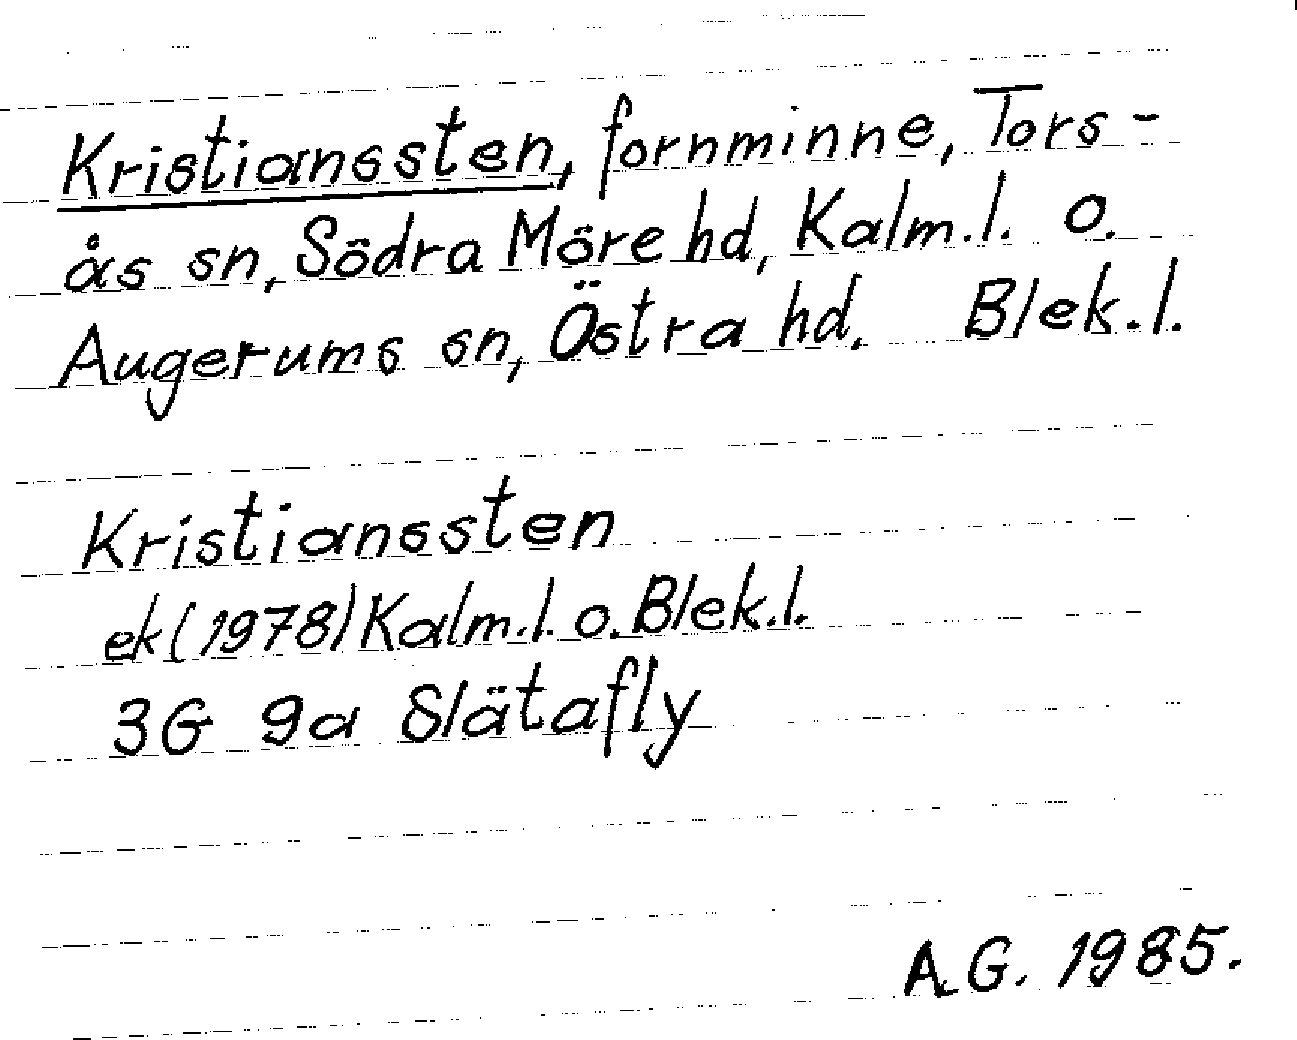 Kristianssten, fornminne, Tors-
ås sn, Södra Möre hd, Kalm.l. o.
Augerums sn, Östra hd. Blek.l.
Kristianssten
ek (1978) Kalm.l. o. Blek.l.
3G 9a Slätafly
A.G. 1985.